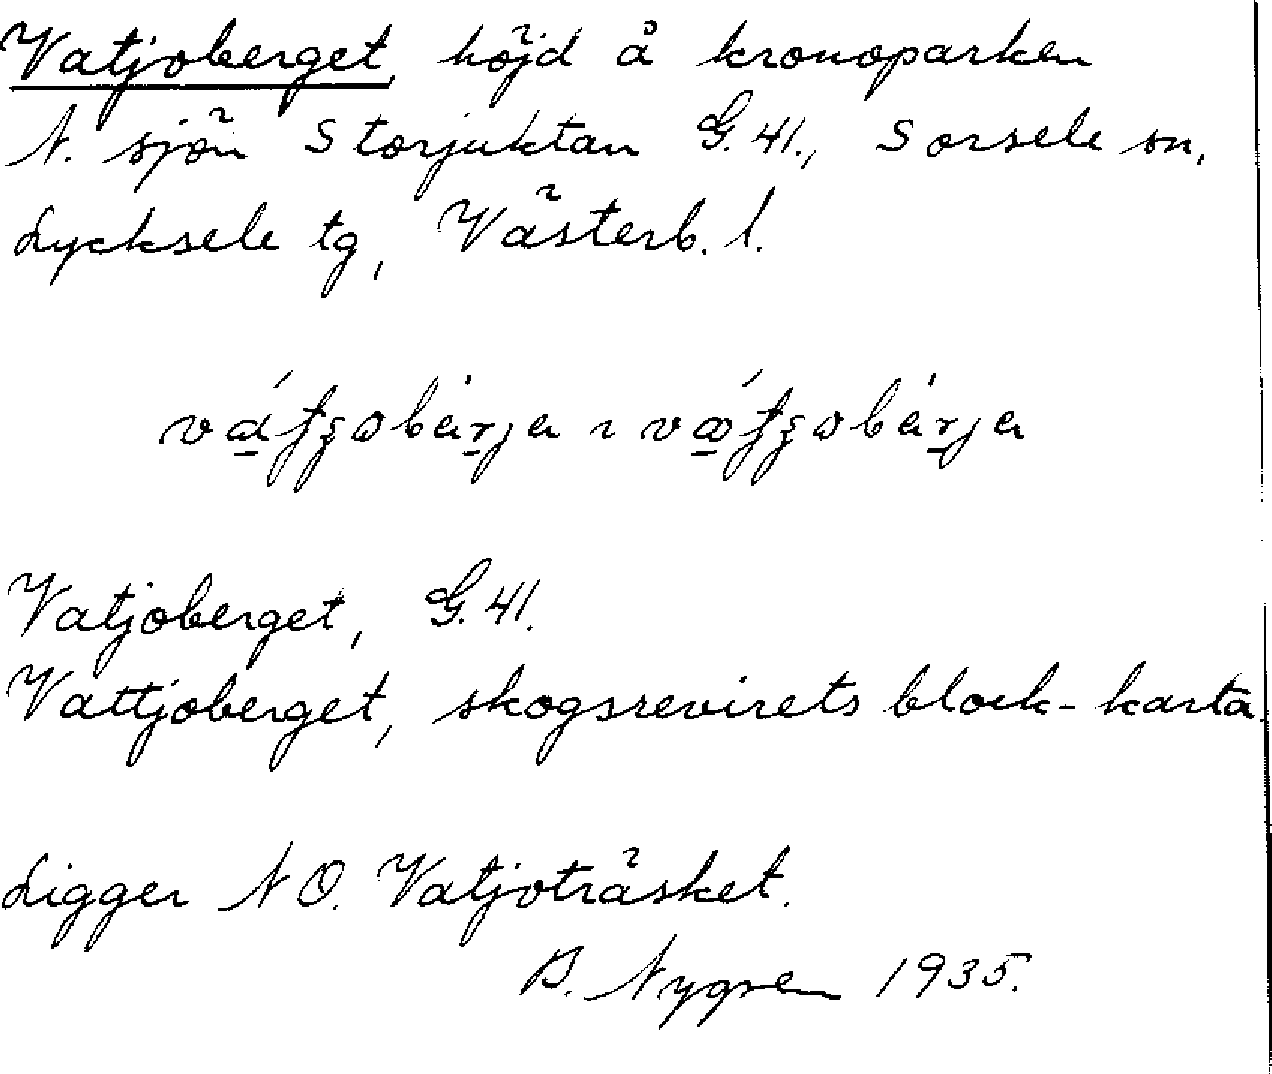 Vatjoberget, höjd å kronoparken
N. sjön Storjuktan G. 41., Sorsele sn,
Lycksele tg, Västerb. l.
Vatjoberget, G. 41.
Vattjoberget, skogsrevirets block-karta.
Ligger NO. Vatjoträsket.
B. Nygren 1935.